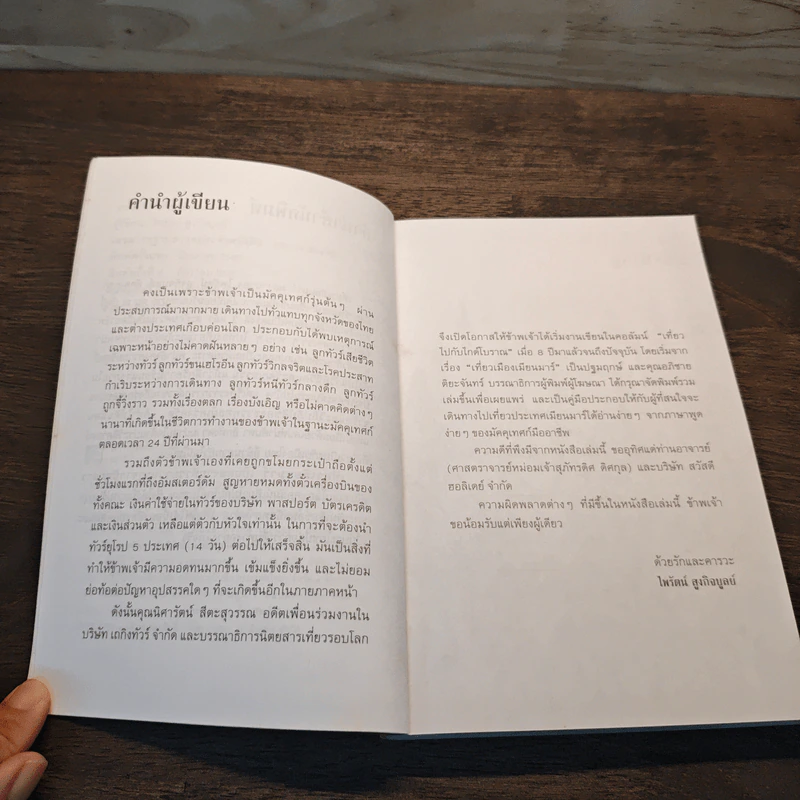 คำนำผู้เขียน
คงเป็นเพราะข้าพเจ้าเป็นมัคคุเทศก์รุ่นต้นๆ ผ่าน
ประสบการณ์มามากมาย เดินทางไปทั่วแทบทุกจังหวัดของไทย
และต่างประเทศเกือบค่อนโลก ประกอบกับได้พบเหตุการณ์
เฉพาะหน้าอย่างไม่คาดฝันหลายๆ อย่าง เช่น ลูกทัวร์เสียชีวิต
ระหว่างทัวร์ ลูกทัวร์ขนเฮโรอีน ลูกทัวร์วิกลจริตและโรคประสาท
กำเริบระหว่างการเดินทาง ลูกทัวร์หนีทัวร์กลางดึก ลูกทัวร์
ถูกจี้วิ่งราว รวมทั้งเรื่องตลก เรื่องบังเอิญ หรือไม่คาดคิดต่างๆ
นานาที่เกิดขึ้นในชีวิตการทำงานของข้าพเจ้าในฐานะมัคคุเทศก์
ตลอดเวลา 24 ปีที่ผ่านมา
รวมถึงตัวข้าพเจ้าเองที่เคยถูกขโมยกระเป๋าถือตั้งแต่
ชั่วโมงแรกที่ถึงอัมสเตอร์ดัม สูญหายหมดทั้งตั๋วเครื่องบินของ
ทั้งคณะ เงินค่าใช้จ่ายในทัวร์ของบริษัท พาสปอร์ต บัตรเครดิต
และเงินส่วนตัว เหลือแต่ตัวกับหัวใจเท่านั้น ในการที่จะต้องนำ
ทัวร์ยุโรป 5 ประเทศ (14 วัน) ต่อไปให้เสร็จสิ้น มันเป็นสิ่งที่
ทำให้ข้าพเจ้ามีความอดทนมากขึ้น เข้มแข็งยิ่งขึ้น และไม่ยอม
ย่อท้อต่อปัญหาอุปสรรคใดๆ ที่จะเกิดขึ้นอีกในภายภาคหน้า
ดังนั้นคุณนิศารัตน์ สีตะสุวรรณ อดีตเพื่อนร่วมงานใน
บริษัท เถกิงทัวร์ จำกัด และบรรณาธิการนิตยสารเที่ยวรอบโลก
จึงเปิดโอกาสให้ข้าพเจ้าได้เริ่มงานเขียนในคอลัมน์ "เที่ยว
ไปกับไกด์โบราณ" เมื่อ 8 ปีมาแล้วจนถึงปัจจุบัน โดยเริ่มจาก
เรื่อง "เที่ยวเมืองเมียนมาร์" เป็นปฐมฤกษ์ และคุณอภิชาย
ติยะจันทร์ บรรณาธิการผู้พิมพ์ผู้โฆษณา ได้กรุณาจัดพิมพ์รวม
เล่มขึ้นเพื่อเผยแพร่ และเป็นคู่มือประกอบให้กับผู้ที่สนใจจะ
เดินทางไปเที่ยวประเทศเมียนมาร์ได้อ่านง่ายๆ จากภาษาพูด
ง่ายๆ ของมัคคุเทศก์มืออาชีพ
ความดีที่พึงมีจากหนังสือเล่มนี้ ขออุทิศแด่ท่านอาจารย์
(ศาสตราจารย์หม่อมเจ้าสุภัทรดิศ ดิศกุล) และบริษัท สวัสดี
ฮอลิเดย์ จำกัด
ความผิดพลาดต่างๆ ที่มีขึ้นในหนังสือเล่มนี้ ข้าพเจ้า
ขอน้อมรับแต่เพียงผู้เดียว
ด้วยรักและคารวะ
ไพรัตน์ สูงกิจบูลย์